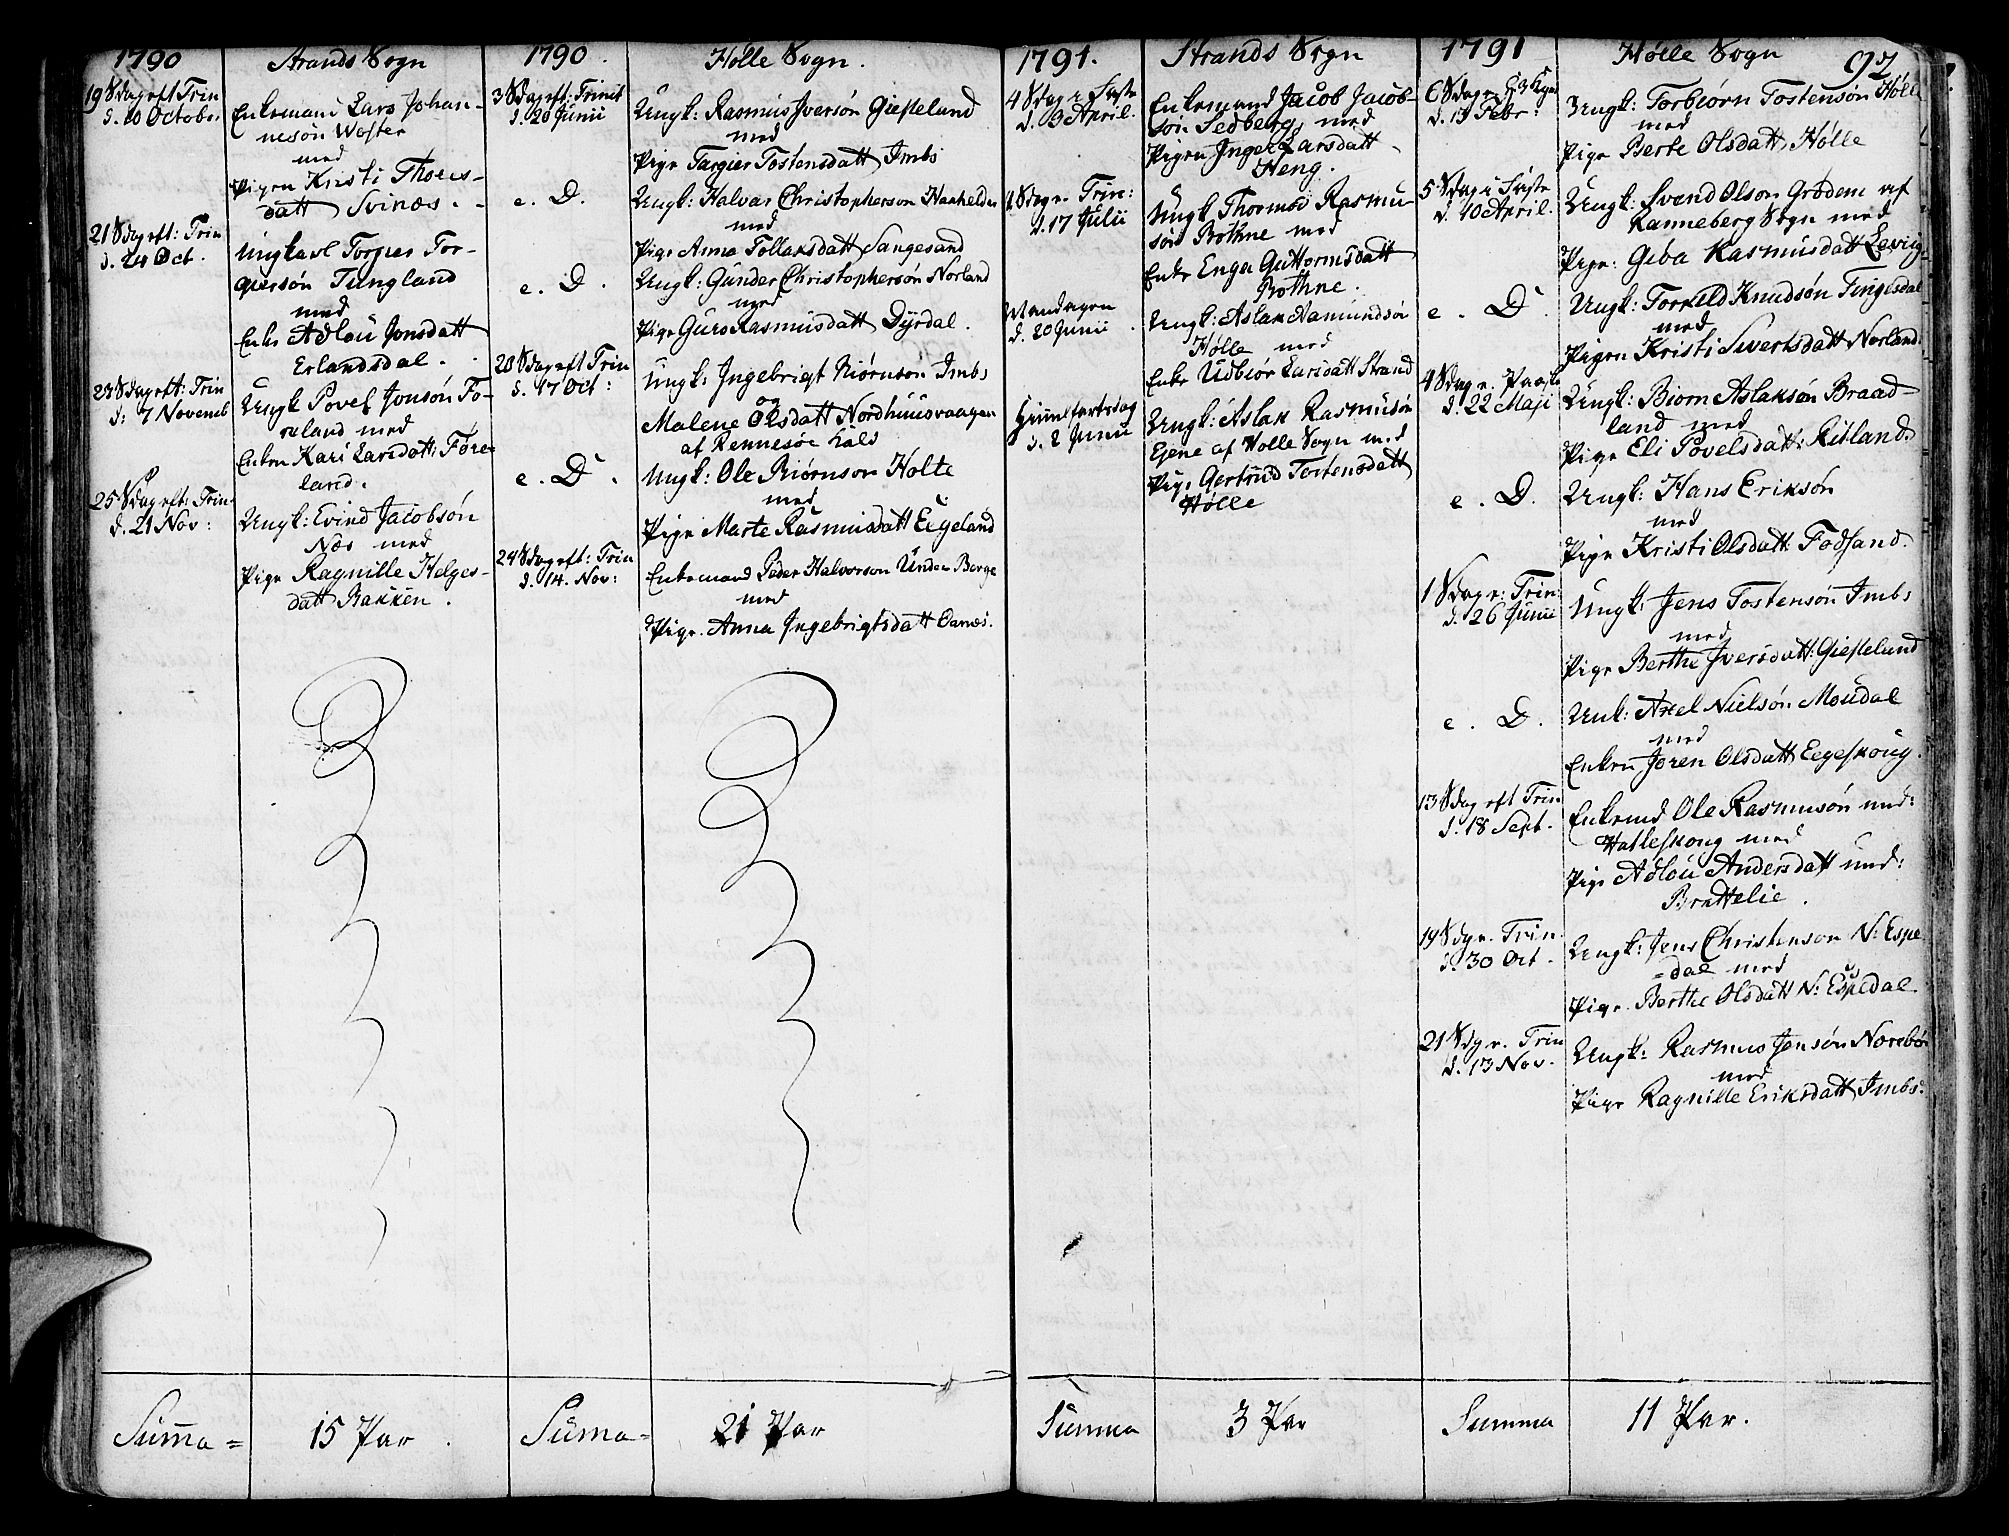 1790
Strands Sogn
19 Sdag eft Trin
d. 10 Octobr.
Enkemand Lars Johan-
nesøn Woster
med
Pigen Kristi Thores-
datt Svinæs.
21 Sdag eft: Trin
d. 24 Oct.
Ungkarl Torger Tor-
giersøn Tungland
med
Enke Adlou Jonsdatt
Erlandsdal.
23 Sdag eft: Trin
d: 7 Novemb
Ungk Povel Jonsøn Fo-
reland med
Enken Kari Larsdatt: Føre-
land.
25 Sdag eft: Trin
d. 21 Nov:
Ungk: Evind Jacobsøn
Næs med
Pige Ragnille Helges-
datt Bakken.
Suma =
15 Par.
1790.
Holle Sogn.
3 Sdag eft: Trinit
d. 20 Junii
Ungk: Rasmus Iversøn Giesteland
med
Pige Targier Tostensdatt Imbs
e. D.
Ungk: Halvar Christophersen Haahelder
med
Pige Anna Tollaksdatt Sangesand
e. D.
Ungk: Gunder Christophersøn Norland
med
Pige Guro Rasmusdatt Dyrdal.
20 Sdag eft Trin
d. 17 Oct:
Ungk: Ingebrigt Biørnsøn Imbs
og
Malene Olsdatt Nordhuusvaagen
af Rennesøe Kald
e. D.
Ungk: Ole Biørnson Holte
med
Pige Marte Rasmusdatt Eigeland
24 Sdag eft: Trin
d. 14. Nov:
Enkemand Peder Halvorson Under Berge
med
Pige Anna Ingebrigtsdatt Oanæs.
Suma =
21 Par
1791.
Strands Sogn
4 Sdag i Faste
d. 3 April.
Enkemand Jacob Jacob-
søn Sedberg med
Pigen Inger Larsdatt
Heng.
4 Sdag e. Trin:
d. 17 Julii
Ungk Thormod Rasmu-
søn Bothne med
Enke Enger Guttormsdatt
Bothne.
Mandagen
d. 20 Junii
Ungk: Aslak Aamundsøn
Hølle med
Enke Udbiør Larsdatt Strand
Himelfartsdag
d. 2 Junii
Ungk: Aslak Rasmusøn
Ejene af Holle Sogn med
Pige Gertrud Tostensdatt
Hølle
Summa
3 Par
1791
Hølle Sogn
92
6 Sdag e. H 3 Kger
d. 13 Febr:
Ungk: Torbiørn Tostensøn Hølle
med
Pige Berte Olsdatt Hølle
5 Sdag i Faste
d. 10 April.
Ungk: Svend Olson Grødem af
Ranneberg Sogn med
Pige: Giba Rasmusdatt Levig
e. D.
Ungk: Torkeld Knudsøn Tengesdal
med
Pigen Kristi Sivertsdatt Norland.
4 Sdag e. Paaske
d. 22 Maji
Ungk: Biorn Aslaksøn Braad-
land med
Pige Eli Povelsdatt: Ritland.
e. D.
Ungk: Hans Eriksøn
med
Pige Kristi Olsdatt: Fosssand.
1 Sdag e: Trin:
d. 26 Junii
Ungk: Jens Tostensøn Imbs
med
Pige Berthe Iversdatt: Giesteland
e. D.
Unk: Axel Nielsøn Moudal
med
Enken Joren Olsdatt Eegeskoug.
13 Sdag eft Trin
d. 18 Sept.
Enkemd Ole Rasmusøn und:
Hatleskoug med
Pige Adlou Andersdatt und:
Brattelie.
19 Sdg e. Trin.
d. 30 Oct.
Ungk: Jens Christenson N: Espe
=dal med
Pige Berthe Olsdatt N: Espedal.
21 Sdg e. Trin
d. 13 Nov.
Ungk: Rasmus Jensøn Norebø
med
Pige Ragnille Eriksdatt Imbs.
Summa
11 Par.